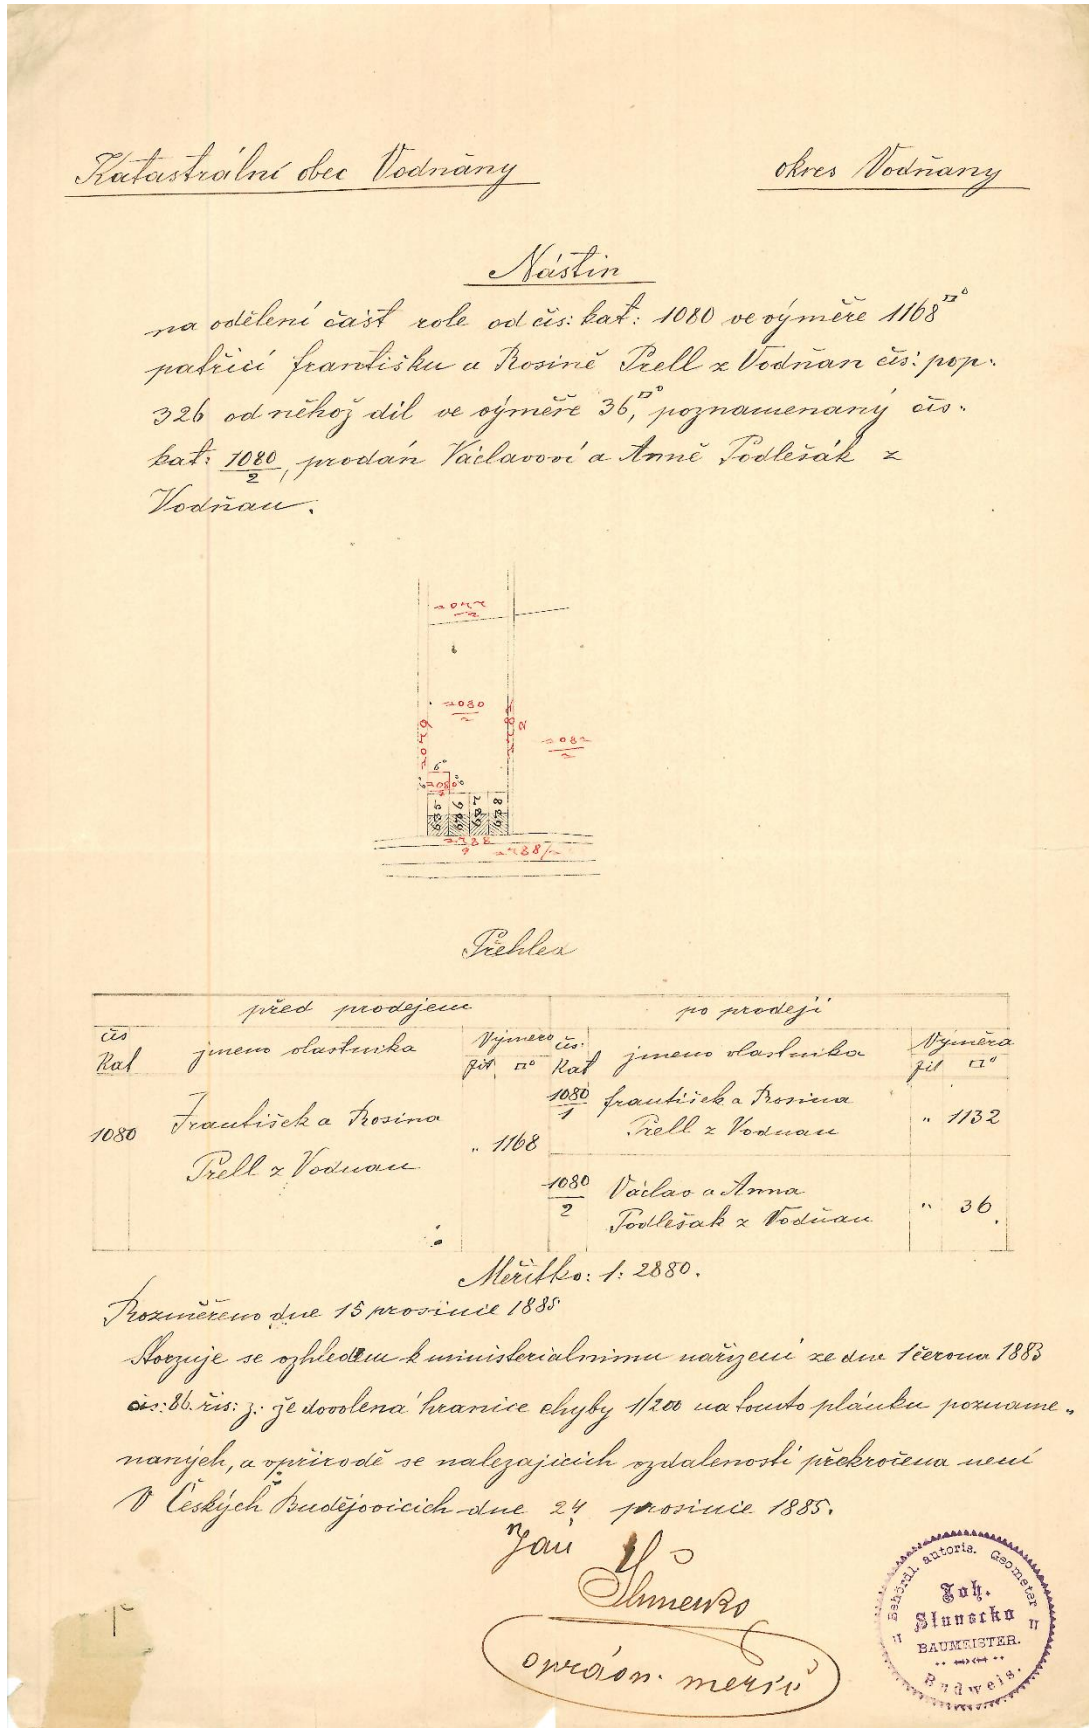 Katastrální obec Vodňany
okres Vodňany
Nástin
na odělení část role od čís: kat: 1080 ve výměře 1168□°
patřící františku a Rosině Prell z Vodňan čís: pop.
326 od něhož díl ve výměře 36□°, poznamenaný čís.
kat: 1080/2, prodán Václavovi a Anně Podlešák z
Vodňan.
1080
1082
6°
Přehled
před prodejem
po prodeji
čís Kat
jmeno vlastníka
Výměra
jit. □°
čís. Kat
jmeno vlastníka
Výměra
jit □°
1080
František a Rosina
Prell z Vodnan
" 1168
1080/1
františek a Rosina
Prell z Vodnan
" 1132
1080/2
Václav a Anna
Podlešak z Vodňan
" 36
Měřítko: 1: 2880.
Rozměřeno dne 15 prosince 1885
Stvrzuje se vzhledem k ministerialnimu nařízení ze dne 1 června 1883
čís: 86. řís: z: že dovolená hranice chyby 1/200 na tomto plánku pozname-
naných, a v přírodě se nalezajících vzdaleností překročena není
V Českých Budějovicích dne 24 prosince 1885.
Jan
Slunecko
oprávn. měřič
Behördl. autoris. Geometer
Joh.
Slunecko
BAUMEISTER.
Budweis.